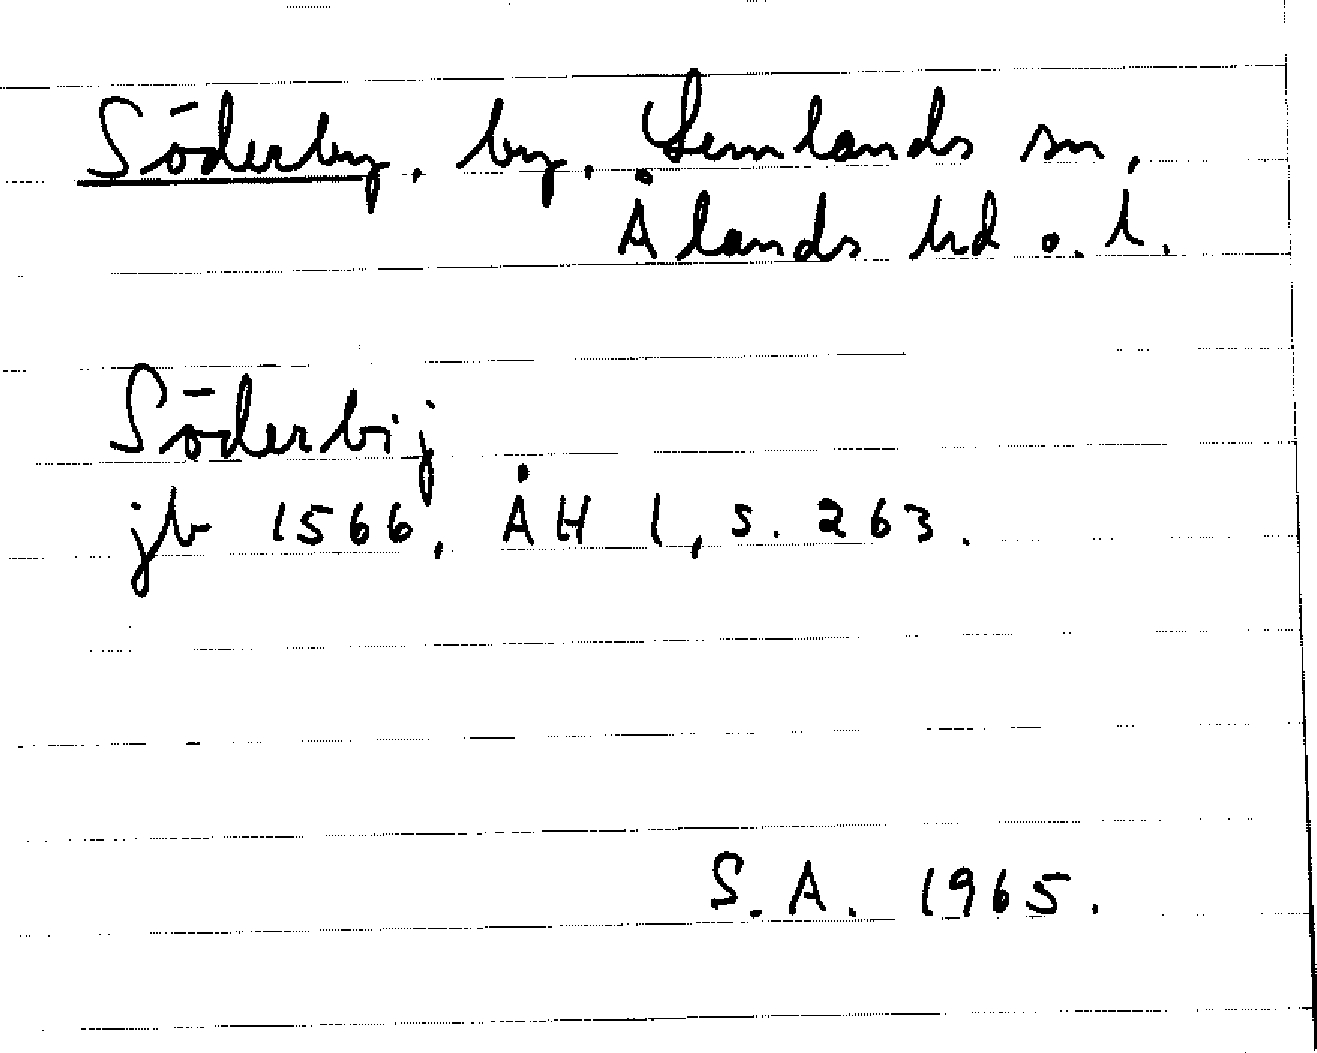 Söderby, by, Lemlands sn,
Ålands hd o. l.
Söderbij
jb 1566, ÅH 1, s. 263.
S. A. 1965.